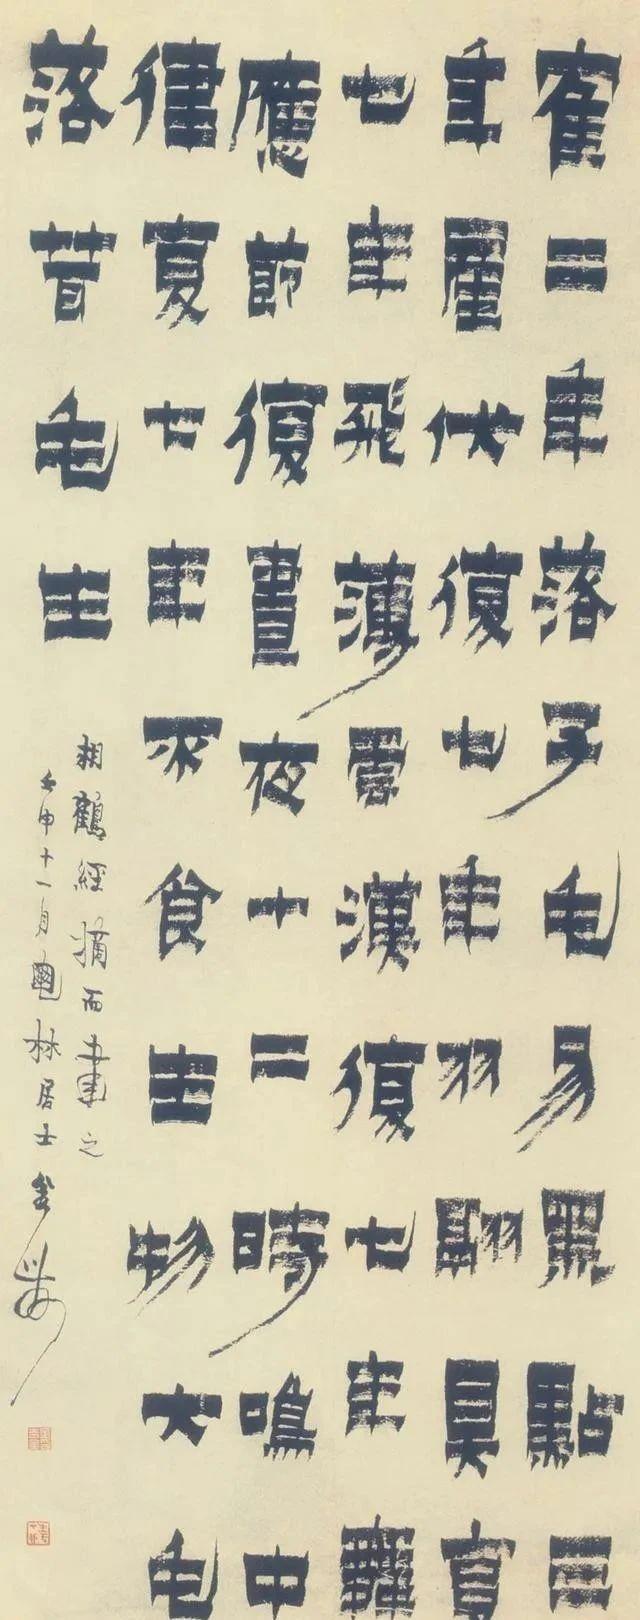 隺二年落子毛易黑點三
年產伏復七年羽翮具夏
七年飛薄雲漢復七年舞
應節復晝夜十二時鳴中
律夏七年不食生物大毛
落茸毛生
相鶴經摘而書之
壬申十一月龜林居士金